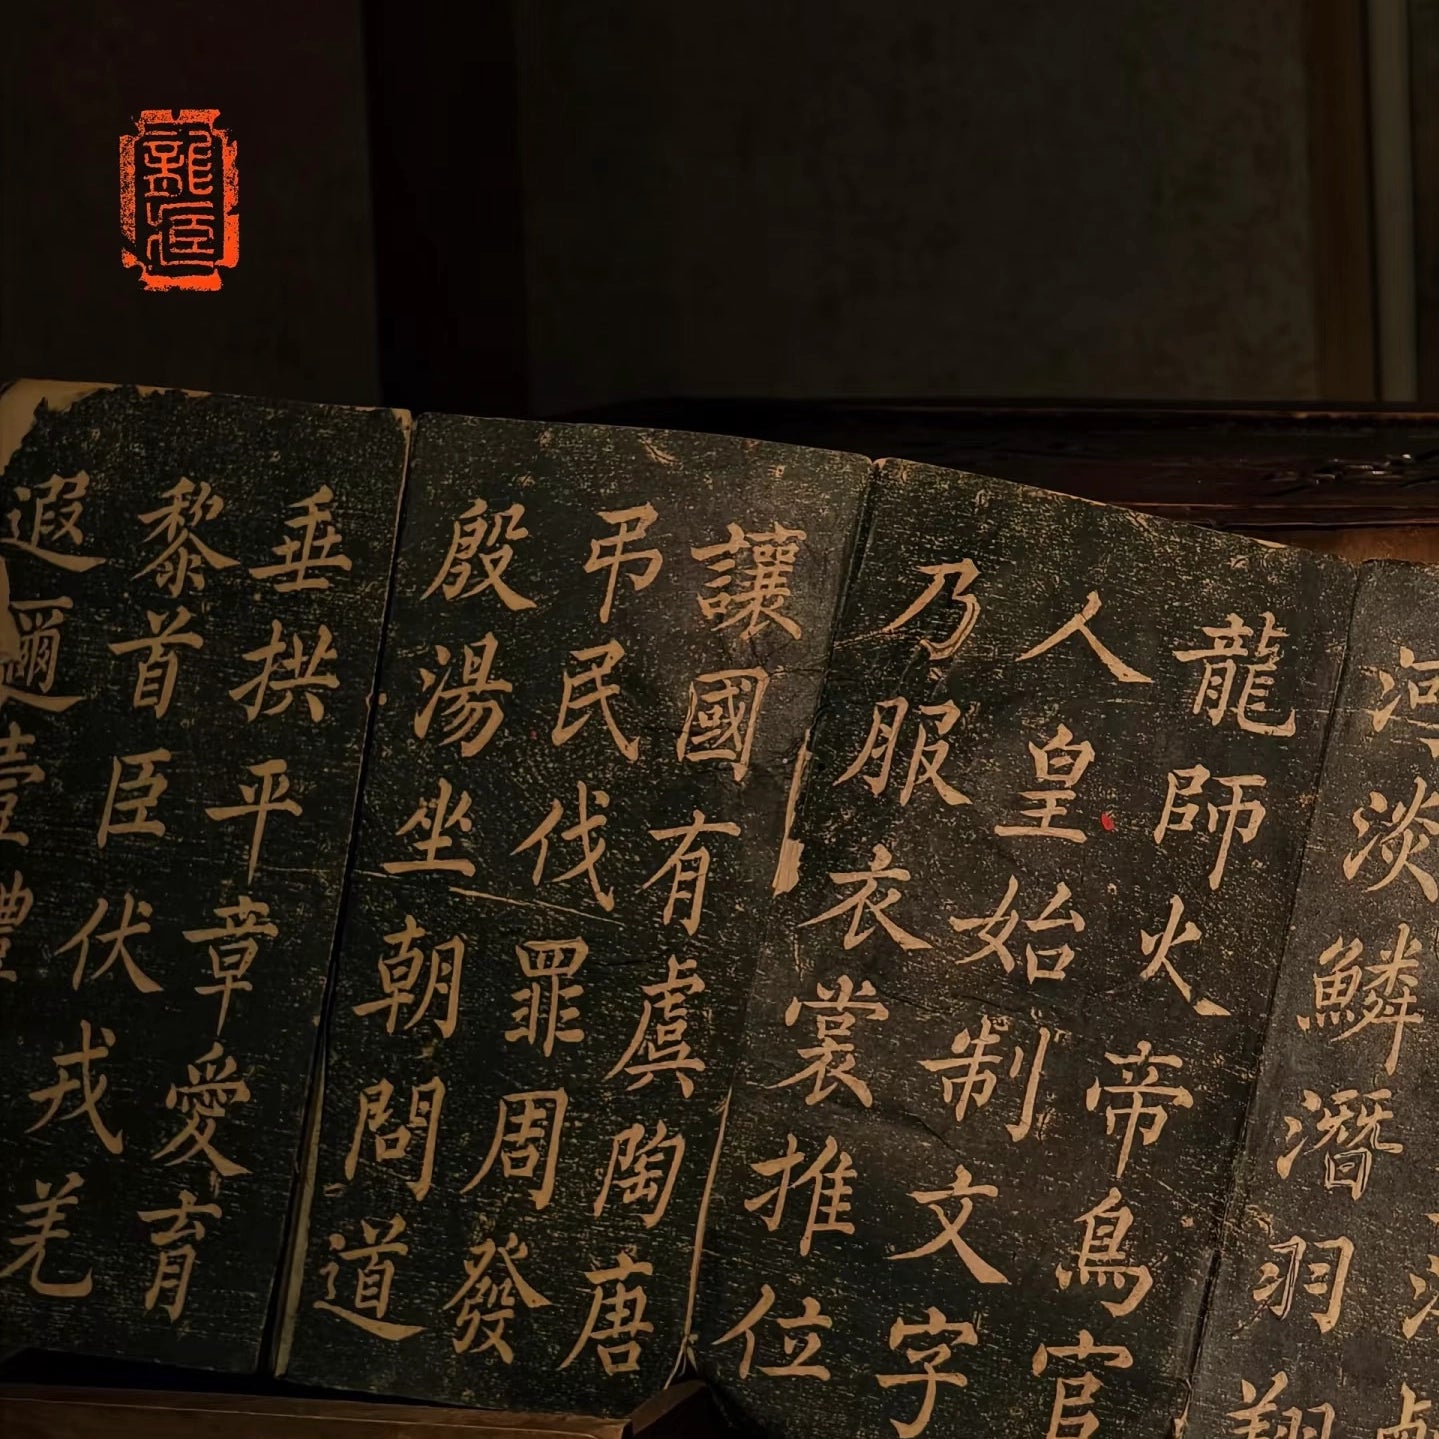 龍
河淡鱗潛羽翔
龍師火帝鳥官
人皇始制文字
乃服衣裳推位
讓國有虞陶唐
吊民伐罪周發
殷湯坐朝問道
垂拱平章愛育
黎首臣伏戎羌
遐邇壹體